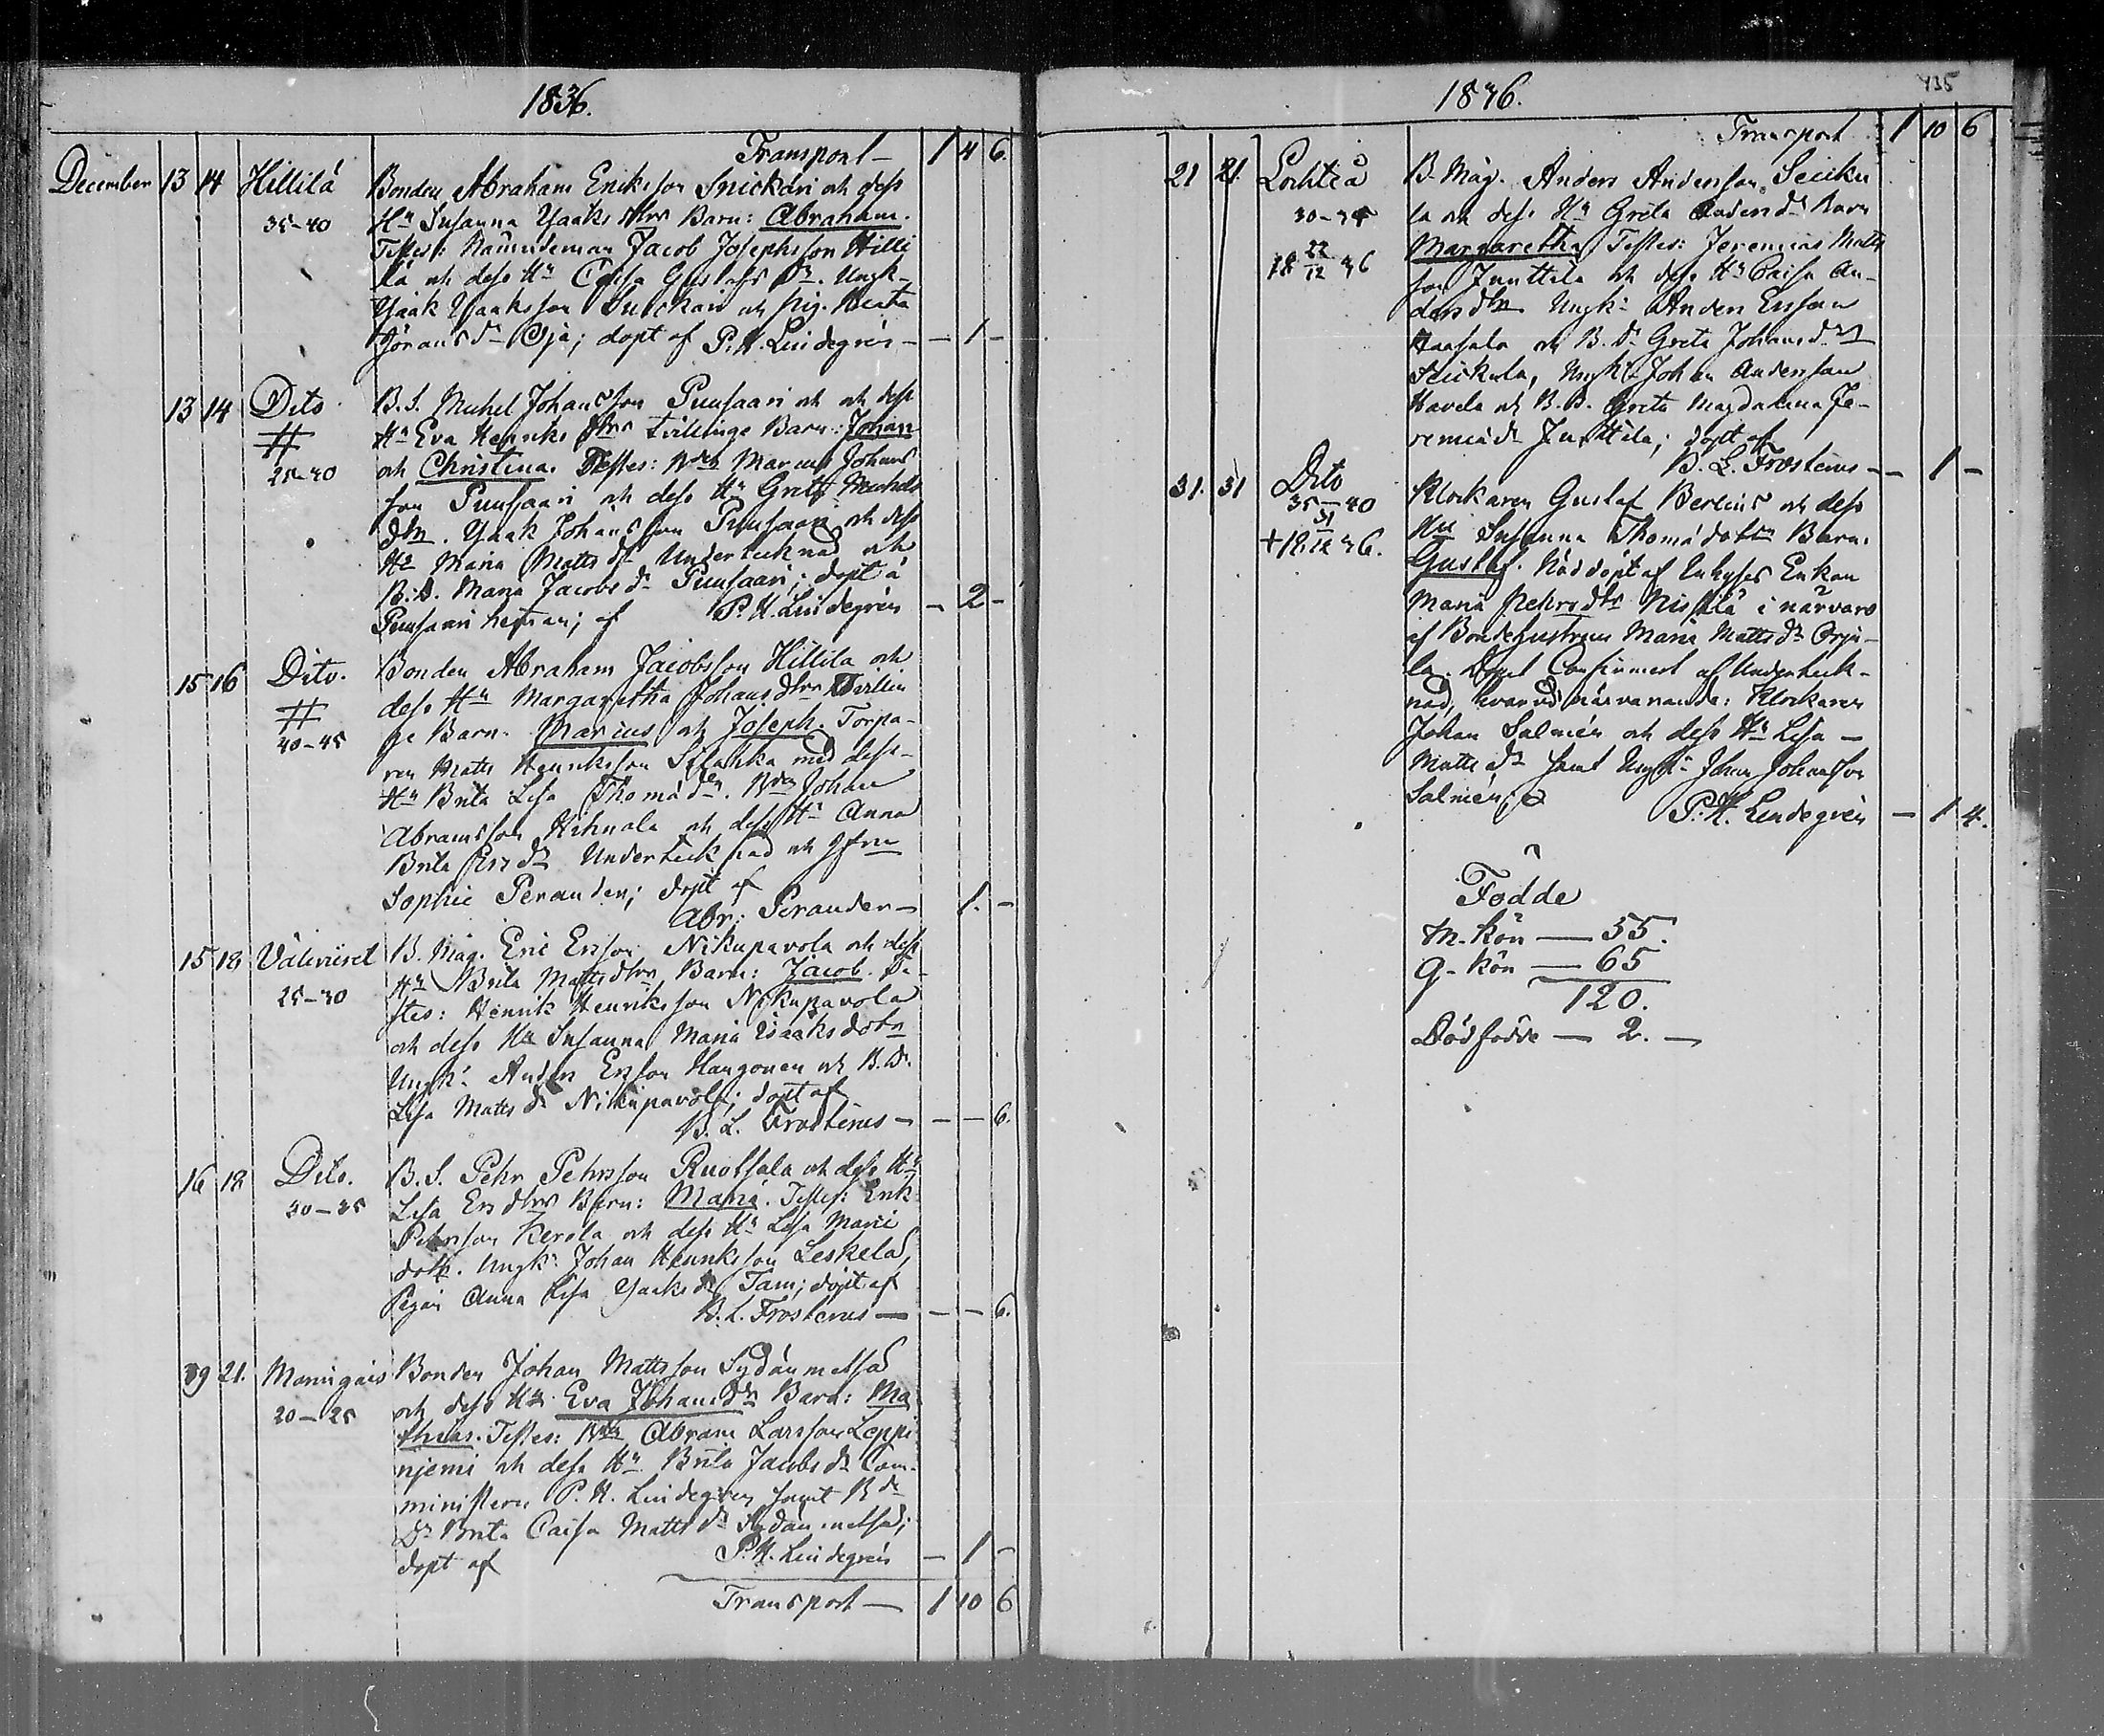 1836.
Transport — 1 4 6.
December 13 14 Hillilä Bonden Abraham Eriksson Snickari och dess
35-40 Hu Susanna Ysaks dtrs Barn: Abraham.
Testes: Nämndeman Jacob Josephsson Hilli
lä och dess Hu Caisa Gustafs Dr. Ungk.
Ysaak Ysaaksson Snickari och pig. Beata
Görans dr Oja; döpt af P. H. Lindegrén — — 1 —
13 14 Dito B. S. Michel Johansson Puusaari och dess
# Hu Eva Henriks dtrs tvillinge Barn: Johan
25-30 och Christina. Testes: Bdn Marcus Johans
son Puusaari och dess Hu Greta Michels
dtr. Ysaak Johansson Puusaari och dess
Hu Maria Matts dr Undertecknad och
B. D. Maria Jacobs dr Puusaari; döpt å
Puusaari heman; af P. H. Lindegrén — 2 —
15 16 Dito. Bonden Abraham Jacobsson Hillilä och
# dess Hu Margaretha Johans dtrs Tvillin
40-45 ge Barn. Marcus och Joseph. Torpa-
ren Matts Henriksson Slankka med dess
Hu Brita Lisa Thomä dr. Bdn Johan
Abramsson Hihnala och dess Hu Anna
Brita Ers dr Undertecknad och Jfru
Sophie Perander; döpt af
Abr: Perander — 1. —
15 18 Väliviiret B. Måg. Eric Ersson Nikupavola och dess
25-30 Hu Brita Matts dtrs Barn: Jacob. Te-
stes: Henrik Henriksson Nikupavola
och dess Hu Susanna Maria Isaaks dotr
Ungk. Anders Ersson Hangonen och B. D.
Lisa Matts dr Nikupavola; döpt af
B. L. Frosterus — — — 6.
16 18 Dito. B. S. Pehr Pehrsson Ruotsala och dess Hu
30-35 Lisa Ers dtrs Barn: Maria. Testes: Erik
Pehrsson Kerola och dess Hu Lisa Marie
dotr. Ungk. Johan Henriksson Leskelä,
Pigan Anna Lisa Ysaks dr Tam; döpt af
B. L. Frosterus — — — 6.
19 21. Maringais Bonden Johan Mattsson Sydänmetsä
20-25 och dess Hu Eva Johans Dr Barn: Ma
thias. Testes: Bdn Abram Larsson Leppi
njemi och dess Hu Brita Jacobs dr Com-
ministern P. H. Lindegrén samt Bde
Dr Brita Caisa Matts dr Sydänmetsä;
döpt af P. H. Lindegrén — 1 —
Transport — 1 10 6
135
1836.
Transport 1 10 6
21 21. Lochteå B. Måg. Anders Andersson Seiku
30-35 la och dess Hu Greta Anders dr Barn
18 22/12 36 Margaretha Testes: Jeremias Matts
son Junttila och dess Hu Caisa An-
ders dtr Ungk: Anders Ersson
Haasala och B. Dr Greta Johans dr
Seikula, Ungk: Johan Andersson
Havela och B. D. Greta Magdalena Je-
remiä dr Junttila; döpt af
B. L. Frosterus — — 1 —
31. 31 Dito Klockaren Gustaf Berlins och dess
35-40 Hu Susanna Thomä dotrs Barn.
+ 18 31/12 36. Gustaf. Nöddöpt af Enkan
Maria Pehrs dtr Niskala i närvaro
af Bondehustrun Maria Matts dr Orju-
la. Dopet Confirmert af Underteck-
nad, hvarvid närvarande: Klockaren
Johan Salmén och dess Hu Lisa —
Matts dr samt Ungk: Johan Johansson
Salmén;
P. H. Lindegrén — 1 4.
Födde
M. Kön — 55.
Q- Kön — 65
120.
Dödfödde — 2. —